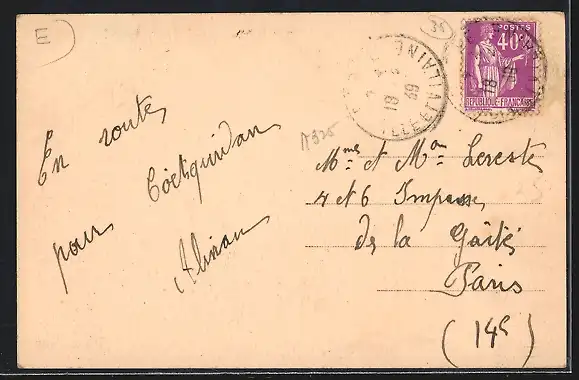 E
35
POSTES
40c
REPUBLIQUE FRANCAISE
ILLE ET VILAINE
18
39
N325
En route
pour Coëtquidan
Mme et Mr Lereste
4 et 6 Impasse
de la Gaité
Paris
(14e)